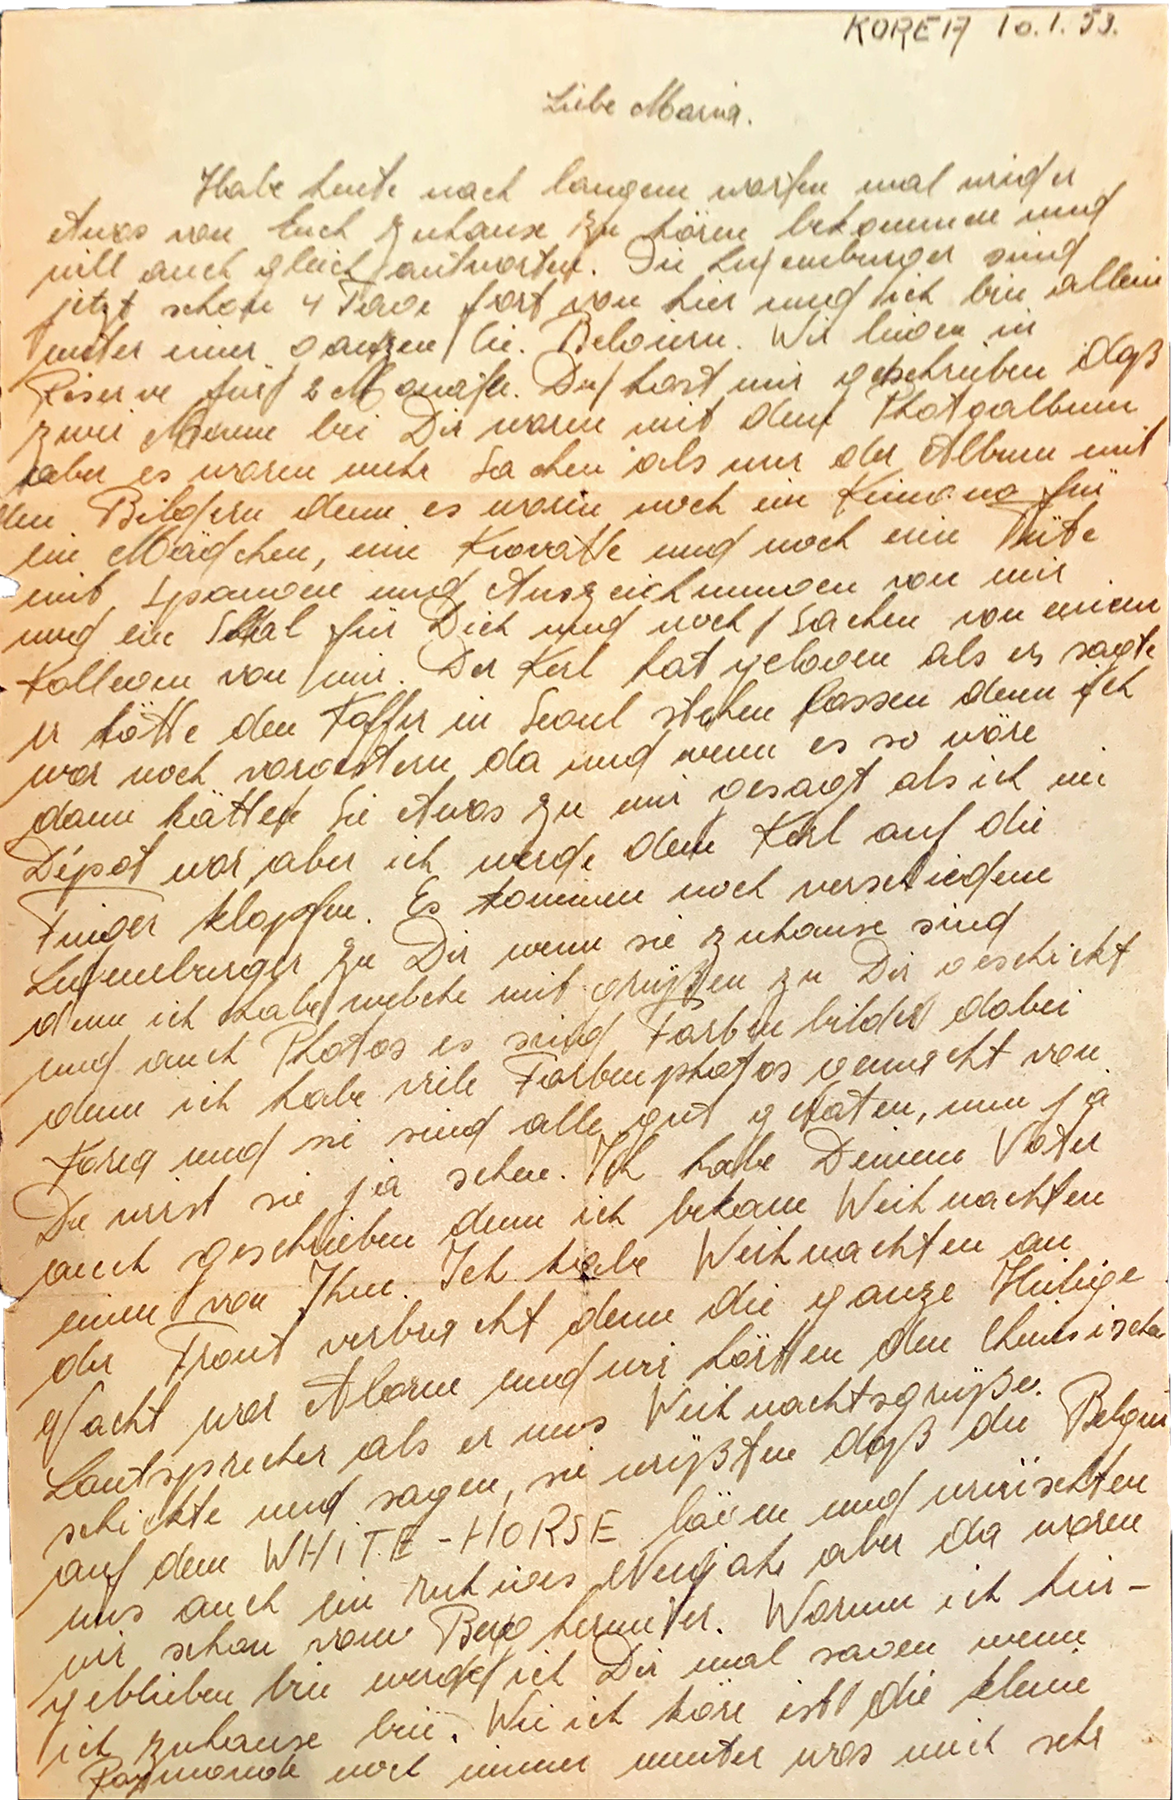 KOREA 10.1.53.
Liebe Maria.
Habe heute nach langem warten mal wieder
etwas von Euch zuhause zu hören bekommen und
will auch gleich antworten. Die Luxemburger sind
jetzt schon 4 Tage fort von hier und ich bin allein
unter einer ganzen Cie. Belgiern. Wir liegen in
Reserve für 2 Monate. Du hast mir geschrieben daß
zwei Mann bei Dir waren mit dem Photoalbum
aber es waren mehr Sachen als nur der Album mit
den Bildern denn es waren noch ein Kimono für
ein Mädchen, eine Kravatte und noch eine Tüte
mit Spangen und Auszeichnungen von mir
und ein Schal für Dich und noch Sachen von einem
Kollegen von mir. Der Kerl hat gelogen als er sagte
er hätte den Koffer in Seoul stehen lassen denn ich
war noch vorgestern da und wenn es so wäre
dann hätten Sie etwas zu mir gesagt als ich im
Dépot war, aber ich werde dem Kerl auf die
Finger klopfen. Es kommen noch verschiedene
Luxemburger zu Dir wenn sie zuhause sind
denn ich habe welche mit grüßen zu Dir geschickt
und auch Photos es sind Farbenbilder dabei
denn ich habe viele Farbenphotos gemacht von
Korea und sie sind alle gut geraten, nun ja
Du wirst sie ja sehen. Ich habe Deinem Vater
auch geschrieben denn ich bekam Weihnachten
einen von Ihm. Ich habe Weihnachten an
der Front verbracht denn die ganze Heilige
Nacht war Alarm und wir hörten den Chinesischen
Lautsprecher als er uns Weihnachtsgrüße
schickte und sagen, sie wüßten daß die Belgier
auf dem WHITE-HORSE lägen und wünschten
uns auch ein ruhiges Neujahr aber da waren
wir schon vom Berg herunter. Warum ich hier-
geblieben bin werde ich Dir mal sagen wenn
ich zuhause bin. Wie ich höre ist die kleine
Raymonde noch immer munter was mich sehr